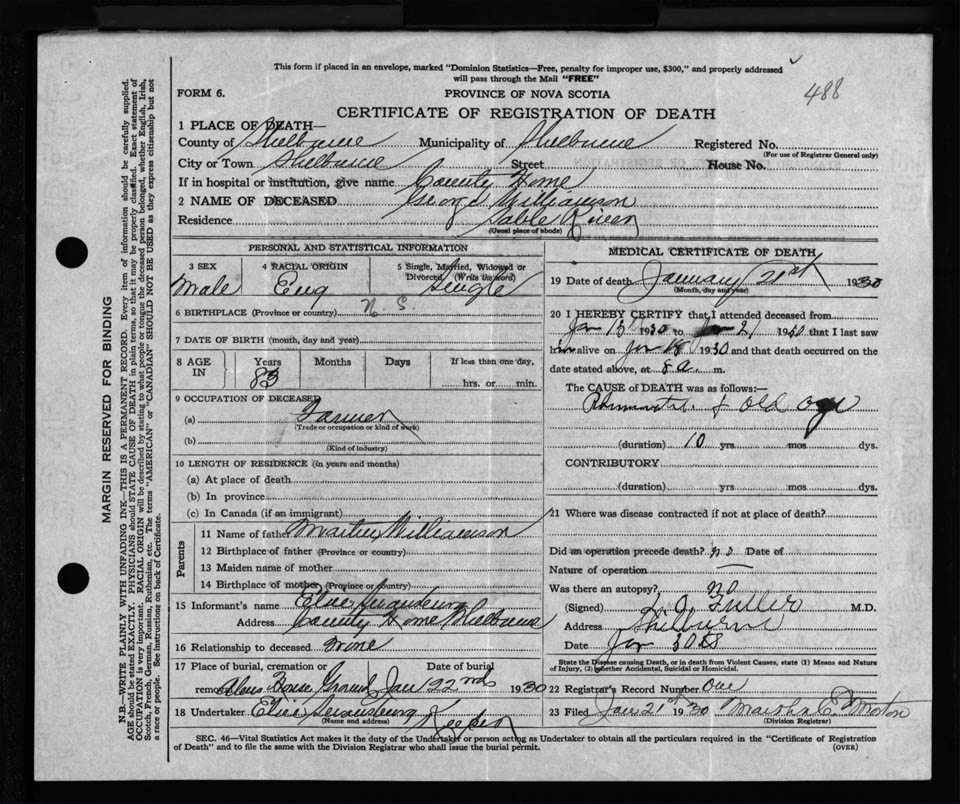 This form if placed in an envelope, marked "Dominion Statistics—Free, penalty for improper use, $300," and properly addressed
will pass through the Mail "FREE"
488
FORM 6.
PROVINCE OF NOVA SCOTIA
CERTIFICATE OF REGISTRATION OF DEATH
1 PLACE OF DEATH—
County of Shelburne Municipality of Shelburne Registered No.
(For use of Registrar General only)
City or Town Shelburne Street House No.
If in hospital or institution, give name County Home
2 NAME OF DECEASED George Williamson
Residence Sable River
(Usual place of abode)
PERSONAL AND STATISTICAL INFORMATION
3 SEX 4 RACIAL ORIGIN 5 Single, Married, Widowed or
Divorced (Write the word)
Male Eng Single
6 BIRTHPLACE (Province or country) N. S.
7 DATE OF BIRTH (month, day and year)
8 AGE IN Years Months Days If less than one day,
83 hrs. or min.
9 OCCUPATION OF DECEASED
(a) Farmer
(Trade or occupation or kind of work)
(b)
(Kind of industry)
10 LENGTH OF RESIDENCE (in years and months)
(a) At place of death
(b) In province
(c) In Canada (if an immigrant)
Parents
11 Name of father Williamson
12 Birthplace of father (Province or country)
13 Maiden name of mother
14 Birthplace of mother (Province or country)
15 Informant's name
Address County Home Shelburne
16 Relationship to deceased
17 Place of burial, cremation or Date of burial
removal Alms House Ground Jan 22nd 1930
18 Undertaker Keeper
(Name and address)
MEDICAL CERTIFICATE OF DEATH
19 Date of death January 21st 1930
(Month, day and year)
20 I HEREBY CERTIFY that I attended deceased from
Jan 13 1930 to Jan 21 1930 that I last saw
him alive on Jan 18 1930 and that death occurred on the
date stated above, at 8 a. m.
The CAUSE of DEATH was as follows:—
& Old age
(duration) 10 yrs. mos. dys.
CONTRIBUTORY
(duration) yrs. mos. dys.
21 Where was disease contracted if not at place of death?
Did an operation precede death? no Date of
Nature of operation —
Was there an autopsy? no
(Signed) Fuller M.D.
Address Shelburne
Date Jan 30
State the Disease causing Death, or in death from Violent Causes, state (1) Means and Nature
of Injury, (2) whether Accidental, Suicidal or Homicidal.
22 Registrar's Record Number One
23 Filed Jan 21st 1930 Martha E. Morton
(Division Registrar)
SEC. 46—Vital Statistics Act makes it the duty of the Undertaker or person acting as Undertaker to obtain all the particulars required in the "Certificate of Registration
of Death" and to file the same with the Division Registrar who shall issue the burial permit.
(OVER)
MARGIN RESERVED FOR BINDING
N.B.—WRITE PLAINLY WITH UNFADING INK—THIS IS A PERMANENT RECORD. Every item of information should be carefully supplied.
AGE should be stated EXACTLY. PHYSICIANS should STATE CAUSE OF DEATH in plain terms, so that it may be properly classified. Exact statement of
OCCUPATION is very important. RACIAL ORIGIN will be described by stating to what people or tongue the deceased person belonged, whether English, Irish,
Scotch, French, German, Russian, Ruthenian, etc. The terms "AMERICAN" or "CANADIAN" SHOULD NOT BE USED as they express citizenship but not
a race or people. See instructions on back of Certificate.